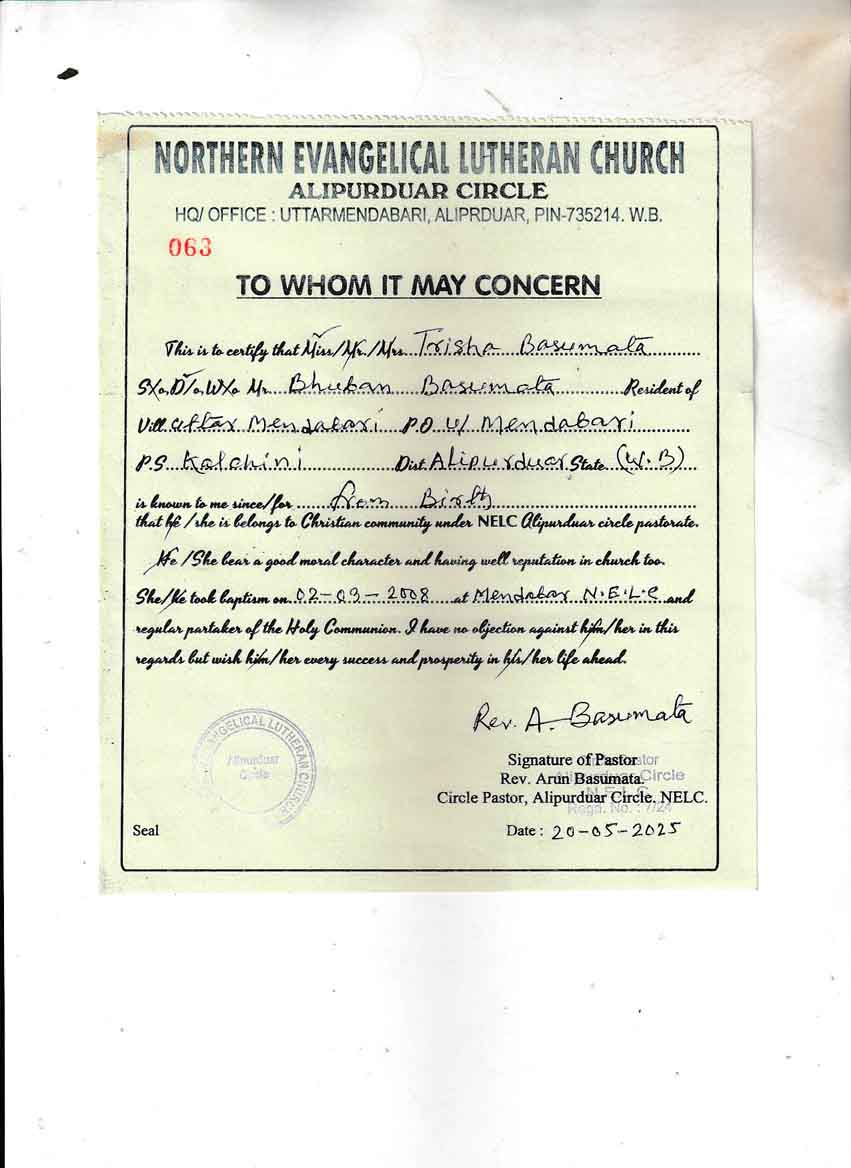 NORTHERN EVANGELICAL LUTHERAN CHURCH
ALIPURDUAR CIRCLE
HQ/ OFFICE : UTTARMENDABARI, ALIPRDUAR, PIN-735214. W.B.
063
TO WHOM IT MAY CONCERN
This is to certify that Miss/Mr./Mrs. Trisha Basumata
S/o.D/o.W/o Mr. Bhuban Basumata Resident of
Vill. Uttar Mendabari P.O U/ Mendabari
P.S. Kalchini Dist. Alipurduar State (W.B)
is known to me since/for from Birth
that he /she is belongs to Christian community under NELC Alipurduar circle pastorate.
He /She bear a good moral character and having well reputation in church too.
She/He took baptism on 02-03-2008 at Mendabar N.E.L.C and
regular partaker of the Holy Communion. I have no objection against him/her in this
regards but wish him/her every success and prosperity in his/her life ahead.
Rev. A. Basumata
EVANGELICAL LUTHERAN CHURCH
Alipurduar
Circle
Signature of Pastor
Rev. Arun Basumata.
Circle Pastor, Alipurduar Circle. NELC.
Alipurduar Circle
N.E.L.C.
Regd. No. : 7/24
Seal
Date : 20-05-2025